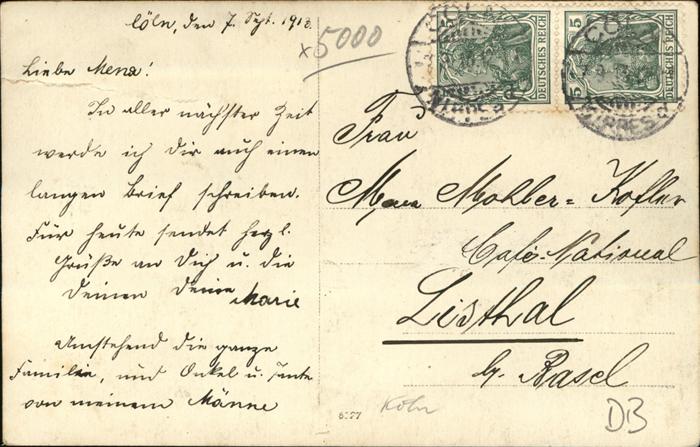 Cöln, den 7. Sept. 1913
Liebe Mena!
In aller nächster Zeit
werde ich Dir auch einen
langen Brief schreiben.
Für heute sendet herzl.
Grüße an Dich u. die
Deinen Deine Marie
Umstehend die ganze
Familie, und Onkel u. Tante
von meinem Männe
x5000
5 DEUTSCHES REICH
5 DEUTSCHES REICH
CÖLN
NIPPES
CÖLN
NIPPES
Frau
Mena Mohler-Kofler
Café-National
Listhal
b. Basel
6077
Köln
DB